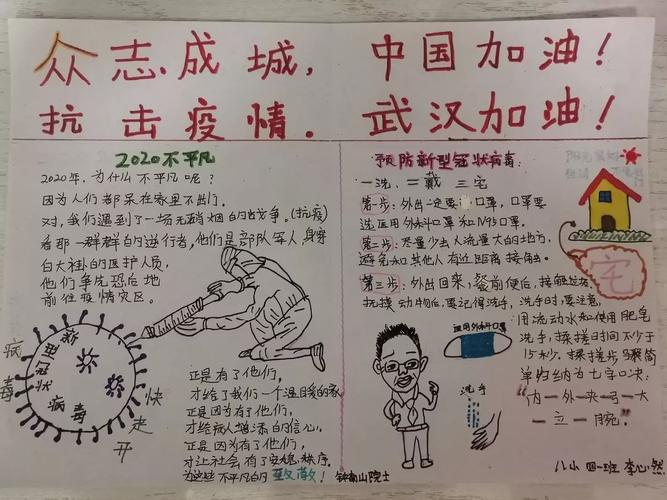 众志成城，
抗击疫情．
中国加油！
武汉加油！
2020不平凡
2020年，为什么不平凡呢？
因为人们都呆在家里不出门．
对，我们遇到了一场无硝烟的战争。(抗疫)
看那一群群的逆行者，他们是部队军人身穿
白大褂的医护人员，
他们争先恐后地
前往疫情灾区。
新型冠状
病毒
病毒
快走开
正是有了他们，
才给了我们一个温暖的家
正是因为有了他们，
才给病人增添的信心，
正是因为有了他们，
才让社会有了安稳秩序．
为这些不平凡的致敬！
钟南山院士
预防新型冠状病毒：
一洗，二戴 三宅
第一步：外出一定要口罩，口罩要
选医用外科口罩和N95口罩．
第二步：尽量少去人流量大的地方，
避免和其他人有近距离接触．
第三步：外出回来，餐前便后，接触垃圾，
抚摸动物后，要记得洗手，洗手时，要注意，
用流动水和使用肥皂
洗手，揉搓时间不少于
15秒，揉搓步骤简
单归纳为七字口决：
“内一外一夹一弓一大
一立一腕。”
宅
医用外科口罩
洗手
八小 四一班 李心然